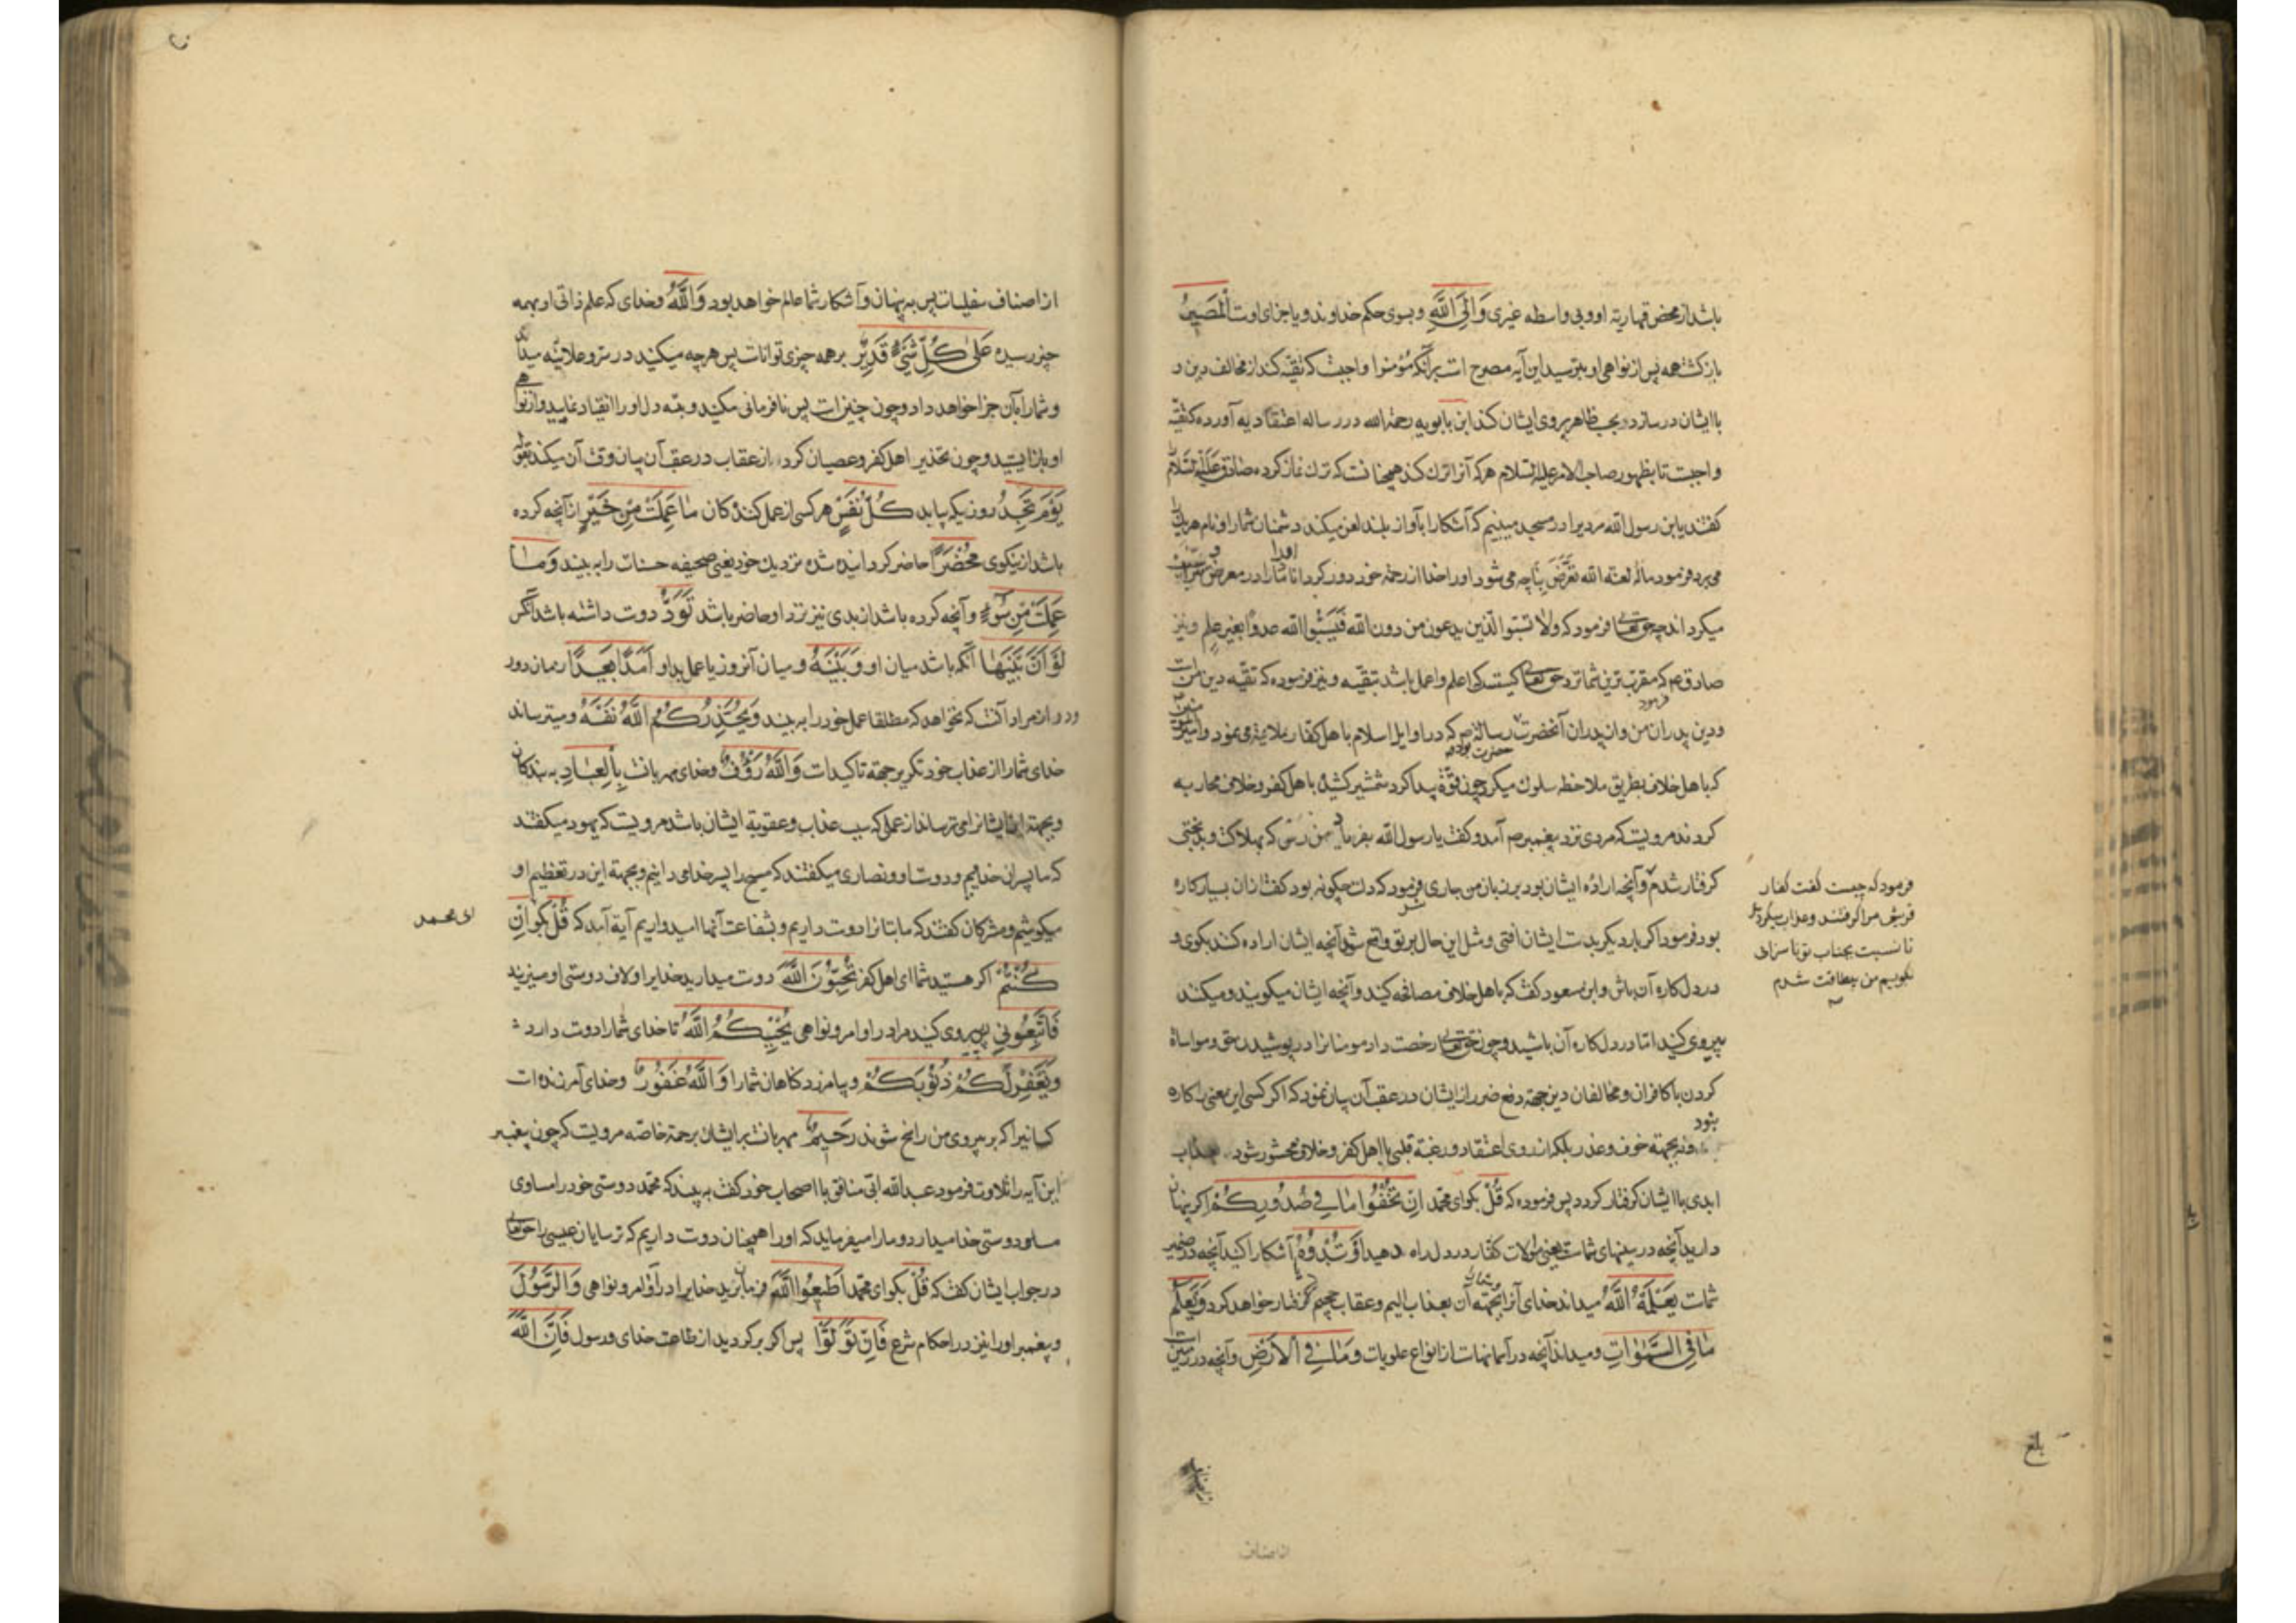 باشد از محض قهاریة او و بی واسطه غیری وَاِلَی اللّٰهِ و بسوی حکم خداوند و یا جزای اوست اَلْمَصیرُ
بازکشت همه پس از نواهی او بترسید این آیه مصرح است برآنکه مؤمنرا واجبست که تقیه کند از مخالف دین و
با ایشان در سازد و بحسب ظاهر پیروی ایشان کند ابن بابویه رحمة الله در رساله اعتقادیه آورده که تقیّه
واجبست تا بظهور صاحب الامر علیه السلام هرکه آنرا ترک کند همچنانست که ترک نماز کرده صادق علیه السّلام
کفتند یابن رسول الله مردیرا در مسجد میبینیم که آشکارا بآواز بلند لعن میکند دشمنان شما را و نام هریک را
می برد فرمود ماله لعنه الله تعرّض بنا چه می شود او را خدا از رحمة خود دور کرداناد ما را در معرض
میکرداند چه حق تعالی فرمود که ولا تسبّوا الّذین یدعون من دون الله فیسبّوا الله عدوًا بغیر علم و نیز
صادق ع م که مقرب ترین شما نزد حق تعالی کیست که اعلم و اعمل باشد بتقیّه و نیز فرموده که تقیّه دین من است
فرمود
ودین پدران من وان پدران آنحضرت رسالة ص که در اوایل اسلام با اهل کفار بملایمة می نمود و امیر
حضرت بود و
که با اهل خلاف بطریق ملاحظه سلوک میکرد چون قوّة پیدا کرد شمشیر کشیده با اهل کفر و خلاف محاربه
کردند مرویست که مردی نزد پیغمبر ص آمد و کفت یا رسول الله بفریاد من رس که بهلاکت و بدبختی
کرفتار شدم و آنچه ارادهٔ ایشان بود بر زبان من جاری فرمود که دلت چکونه بود کفت ازان بسیار کاره
بود فرمود اکر بار دیکر بدست ایشان افتی و مثل این حال بر تو واقع شود آنچه ایشان اراده کنند بکوی و
در دل کاره آن باش و ابن مسعود کفت که با اهل خلاف مصالحه کنید و آنچه ایشان میکویند و میکنند
پیروی کنید اما در دل کاره آن باشید و چون حق تعالی رخصت داد مومنانرا در پوشیدن حق و مواساة
کردن با کافران و مخالفان دین جهة دفع ضرر از ایشان در عقب آن بیان نمود که اکر کسی این معنی را کاره
نبود
و نه بجهتة خوف و عذر بلکه از روی اعتقاد و رغبة قلبی با اهل کفر و خلاف محشور شود بعذاب
ابدی با ایشان کرفتار کردد پس فرموده که قُلْ بکوای محمّد اِنْ تُخْفُوا مَا فِی صُدُورِکُمْ اکر پنهان
دارید آنچه در سینهای شماست یعنی موُلات کفار در دل راه دهید اَوْ تُبْدُوهُ آشکارا کنید آنچه در ضمیر
شماست یَعْلَمْهُ اللّٰهُ میداند خدای آنرا بجهتة آن بعذاب الیم و عقاب جحیم کرفتار خواهد کرد وَیَعْلَمُ
مَا فِی السَّمٰوٰاتِ و میداند آنچه در آسمانهاست از انواع علویات وَمَا فِی اْلاَرْضِ و آنچه در زمین است
فرمود که چیست کفت کفار
قریش مرا کرفتند و عذاب میکردند
تا نسبت بجناب تو ناسزای
نکوییم من بیطاقت شدم
بلغ
از اصناف
از اصناف سفلیات پس به پنهان و آشکار شما عالم خواهد بود وَاللّٰهُ و خدای که علم ذاتی او بهمه
چیز رسیده عَلٰی کُلِّ شَیْءٍ قَدیرٌ بر همه چیزی تواناست پس هرچه میکنید در سرّ و علانیّه میداند
و شما را بآن جزا خواهد داد و چون چنین است پس نافرمانی مکنید و بته دل او را انقیاد نمایید و از نواهی
او باز ایستید و چون تحذیر اهل کفر و عصیان کرد از عقاب در عقب آن بیان وقت آن میکند بقوله
یَوْمَ تَجِدُ روزیکه بیابد کُلُّ نَفْسٍ هر کسی از عمل کنندکان مٰا عَمِلَتْ مِنْ خَیْرٍ از آنچه کرده
باشد از نیکوی مُحْضَرًا حاضر کردانیده شده نزدیک خود یعنی صحیفه حسنات را به بیند وَمٰا
عَمِلَتْ مِنْ سُوءٍ وآنچه کرده باشد از بدی نیز نزد او حاضر باشد تَوَدُّ دوست داشته باشد آنکس
لَوْ اَنَّ بَیْنَهٰا آنکه باشد میان او وَبَیْنَهُ و میان آنروز یا عمل بد او اَمَدًا بَعیدًا زمان دور
و دراز مراد آنست که نخواهد که مطلقا عمل خود را به بیند وَیُحَذِّرُکُمُ اللّٰهُ نَفْسَهُ و میترساند
خدای شما را از عذاب خود تکریر جهتة تاکید است وَاللّٰهُ رَؤُفٌ و خدای مهربانست بِاْلعِبٰادِ به بندکان
و بجهتة این ایشانرا می ترساند از عملی که سبب عذاب و عقوبة ایشان باشد مرویست که یهود میکفتند
که ما پسران خداییم و دوست او و نصاری میکفتند که مسیح را پسر خدا می دانیم و بجهتة این در تعظیم او
میکوشیم و مشرکان کفتند که ما بتانرا دوست داریم و بشفاعت آنها امیدواریم آیة آمد که قُلْ بکو اِنْ
ای محمد
کُنْتُمْ اکر هستید شما ای اهل کفر تُحِبُّونَ اللّٰهَ دوست میدارید خدایرا و لاف دوستی او میزنید
فَاتَّبِعُونی پس پیروی کنید مرا در اوامر و نواهی یُحْبِبْکُمُ اللّٰهُ تا خدای شما را دوست دارد
وَیَغْفِرْلَکُمْ ذُنُوبَکُمْ و بیامرزد کناهان شما را وَاللّٰهُ غَفُورٌ و خدای آمرزنده است
کسانیرا که بر پیروی من راسخ شوند رَحیمٌ مهربانست بر ایشان برحمة خاصّه مرویست که چون پیغمبر
این آیه را تلاوت فرمود عبد الله ابی منافق با اصحاب خود کفت به بینید که محمد دوستی خود را مساوی
مساو دوستی خدا میدارد و ما را میفرماید که او را همچنان دوست داریم که ترسایان عیسی را حق تعالی
در جواب ایشان کفت که قُلْ بکوای محمّد اَطیعُوا اللّٰهَ فرمان برید خدایرا در اوامر و نواهی وَالرَّسُولَ
و پیغمبر او را نیز در احکام شرع فَاِنْ تَوَلَّوْا پس اکر برکردید از طاعت خدای و رسول فَاِنَّ اللّٰهَ